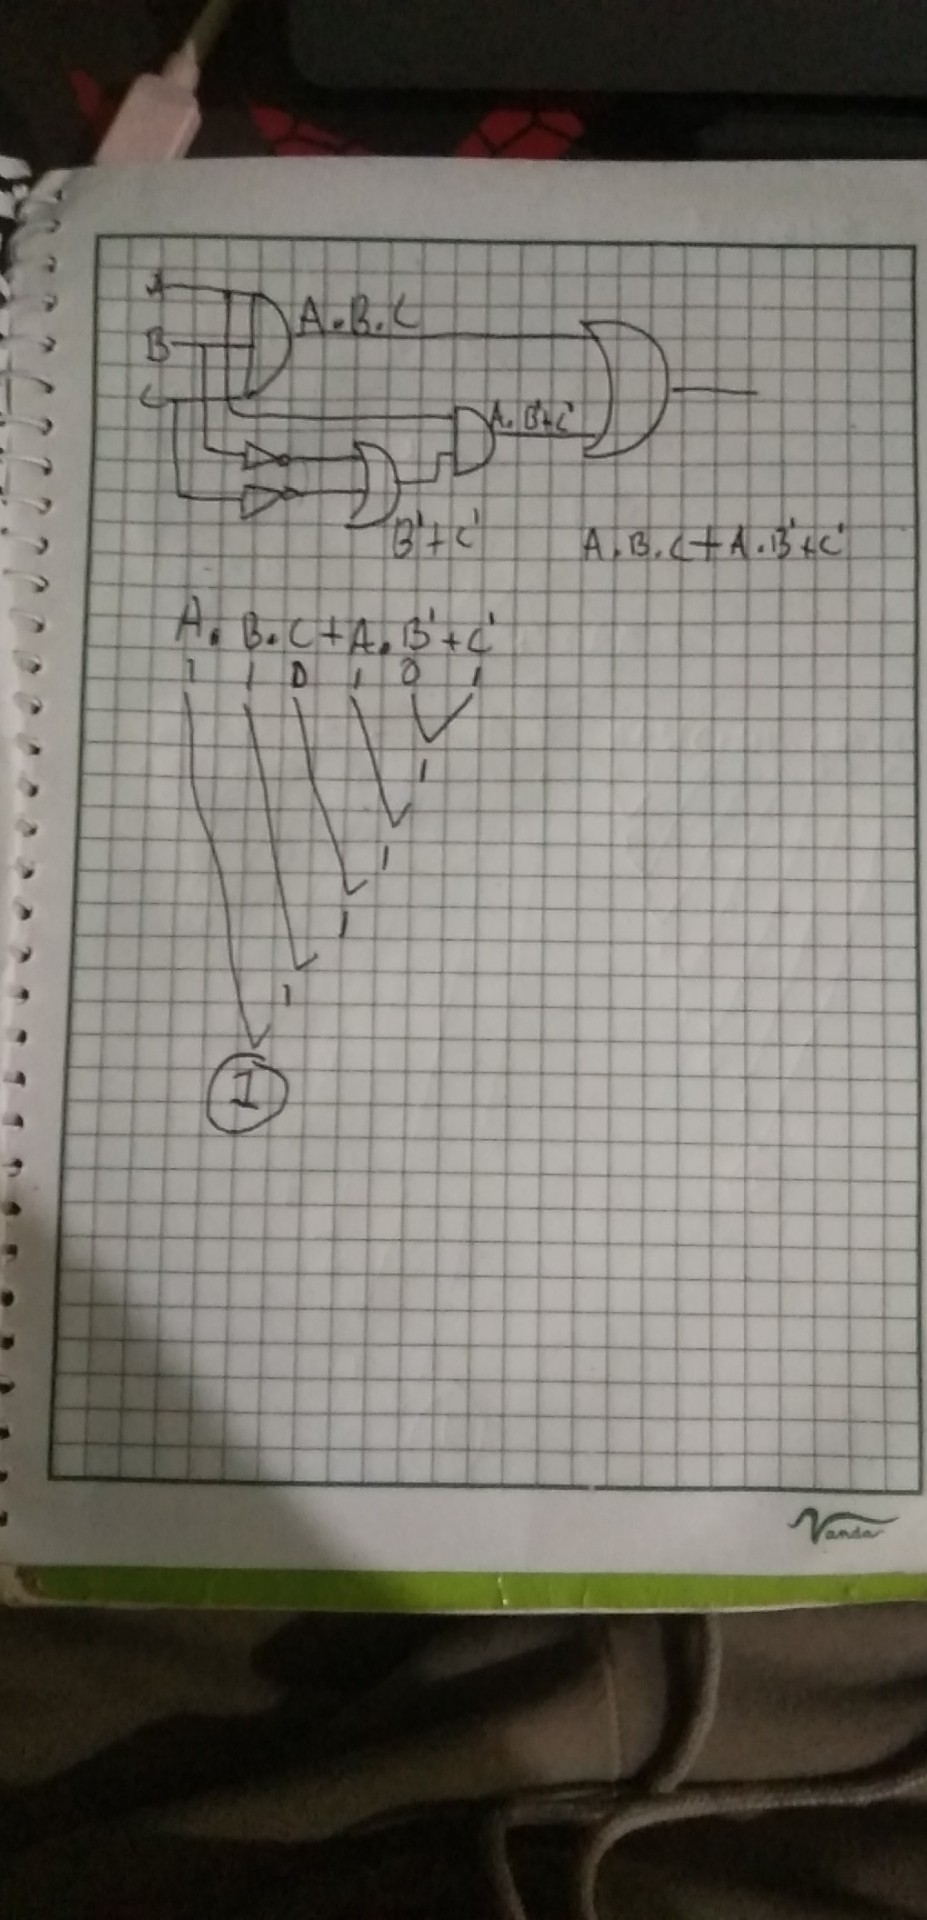 A
A.B.C
B
C
A.B'+C'
B'+C'
A.B.C+A.B'+C'
A.B.C+A.B'+C'
1 1 0 1 0 1
1
1
1
1
1
Vanda